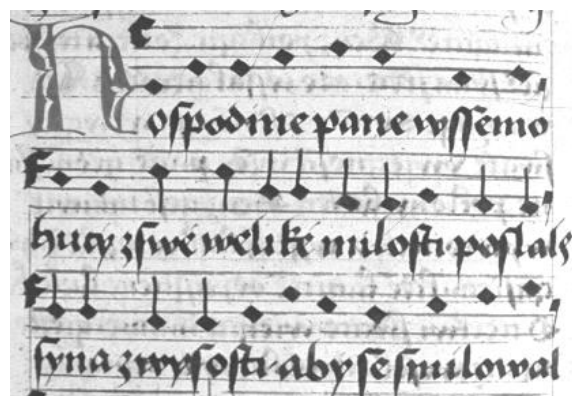 Hospodine pane wssemo
hucy zswe welike milosti poslals
syna zwysosti aby se smilowal